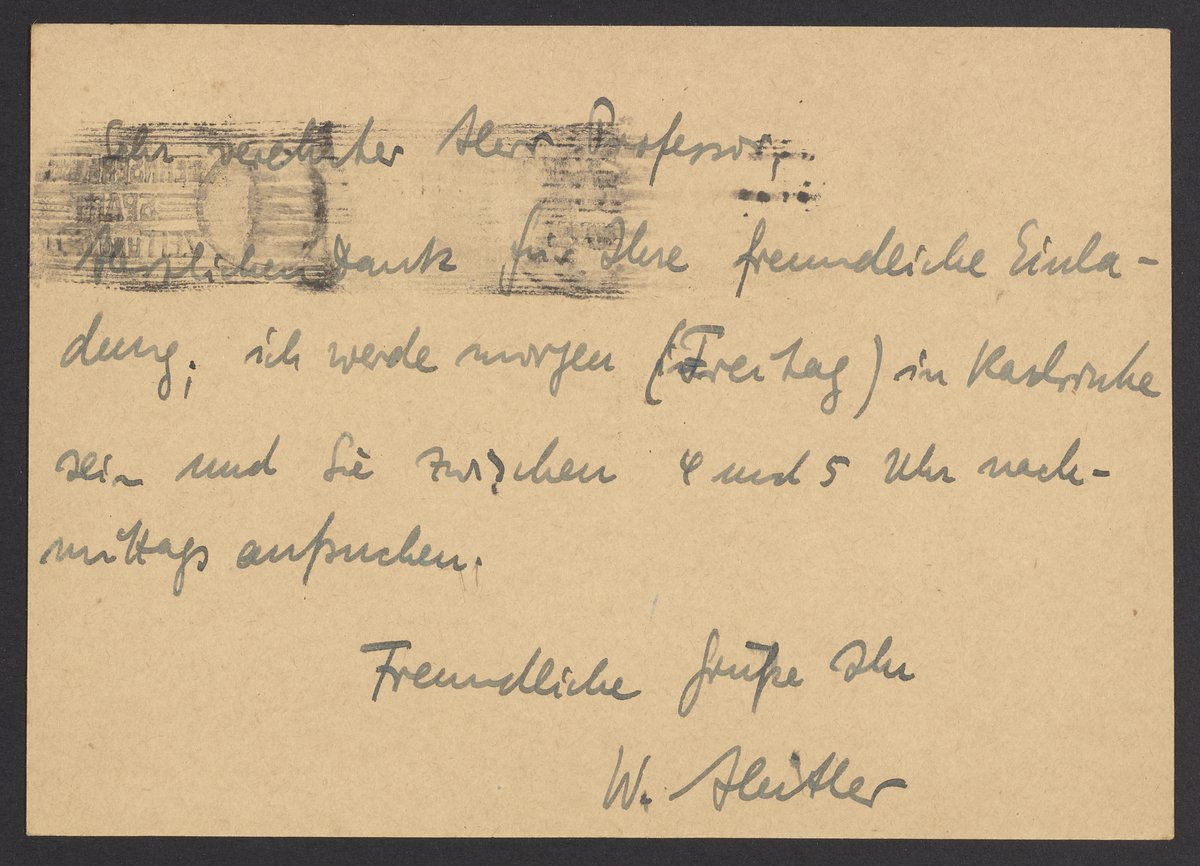 Sehr verehrter Herr Professor,
herzlichen Dank für Ihre freundliche Einla-
dung; ich werde morgen (Freitag) in Karlsruhe
sein und Sie zwischen 4 und 5 Uhr nach-
mittags aufsuchen.
Freundliche Grüße Ihr
W. Heitler